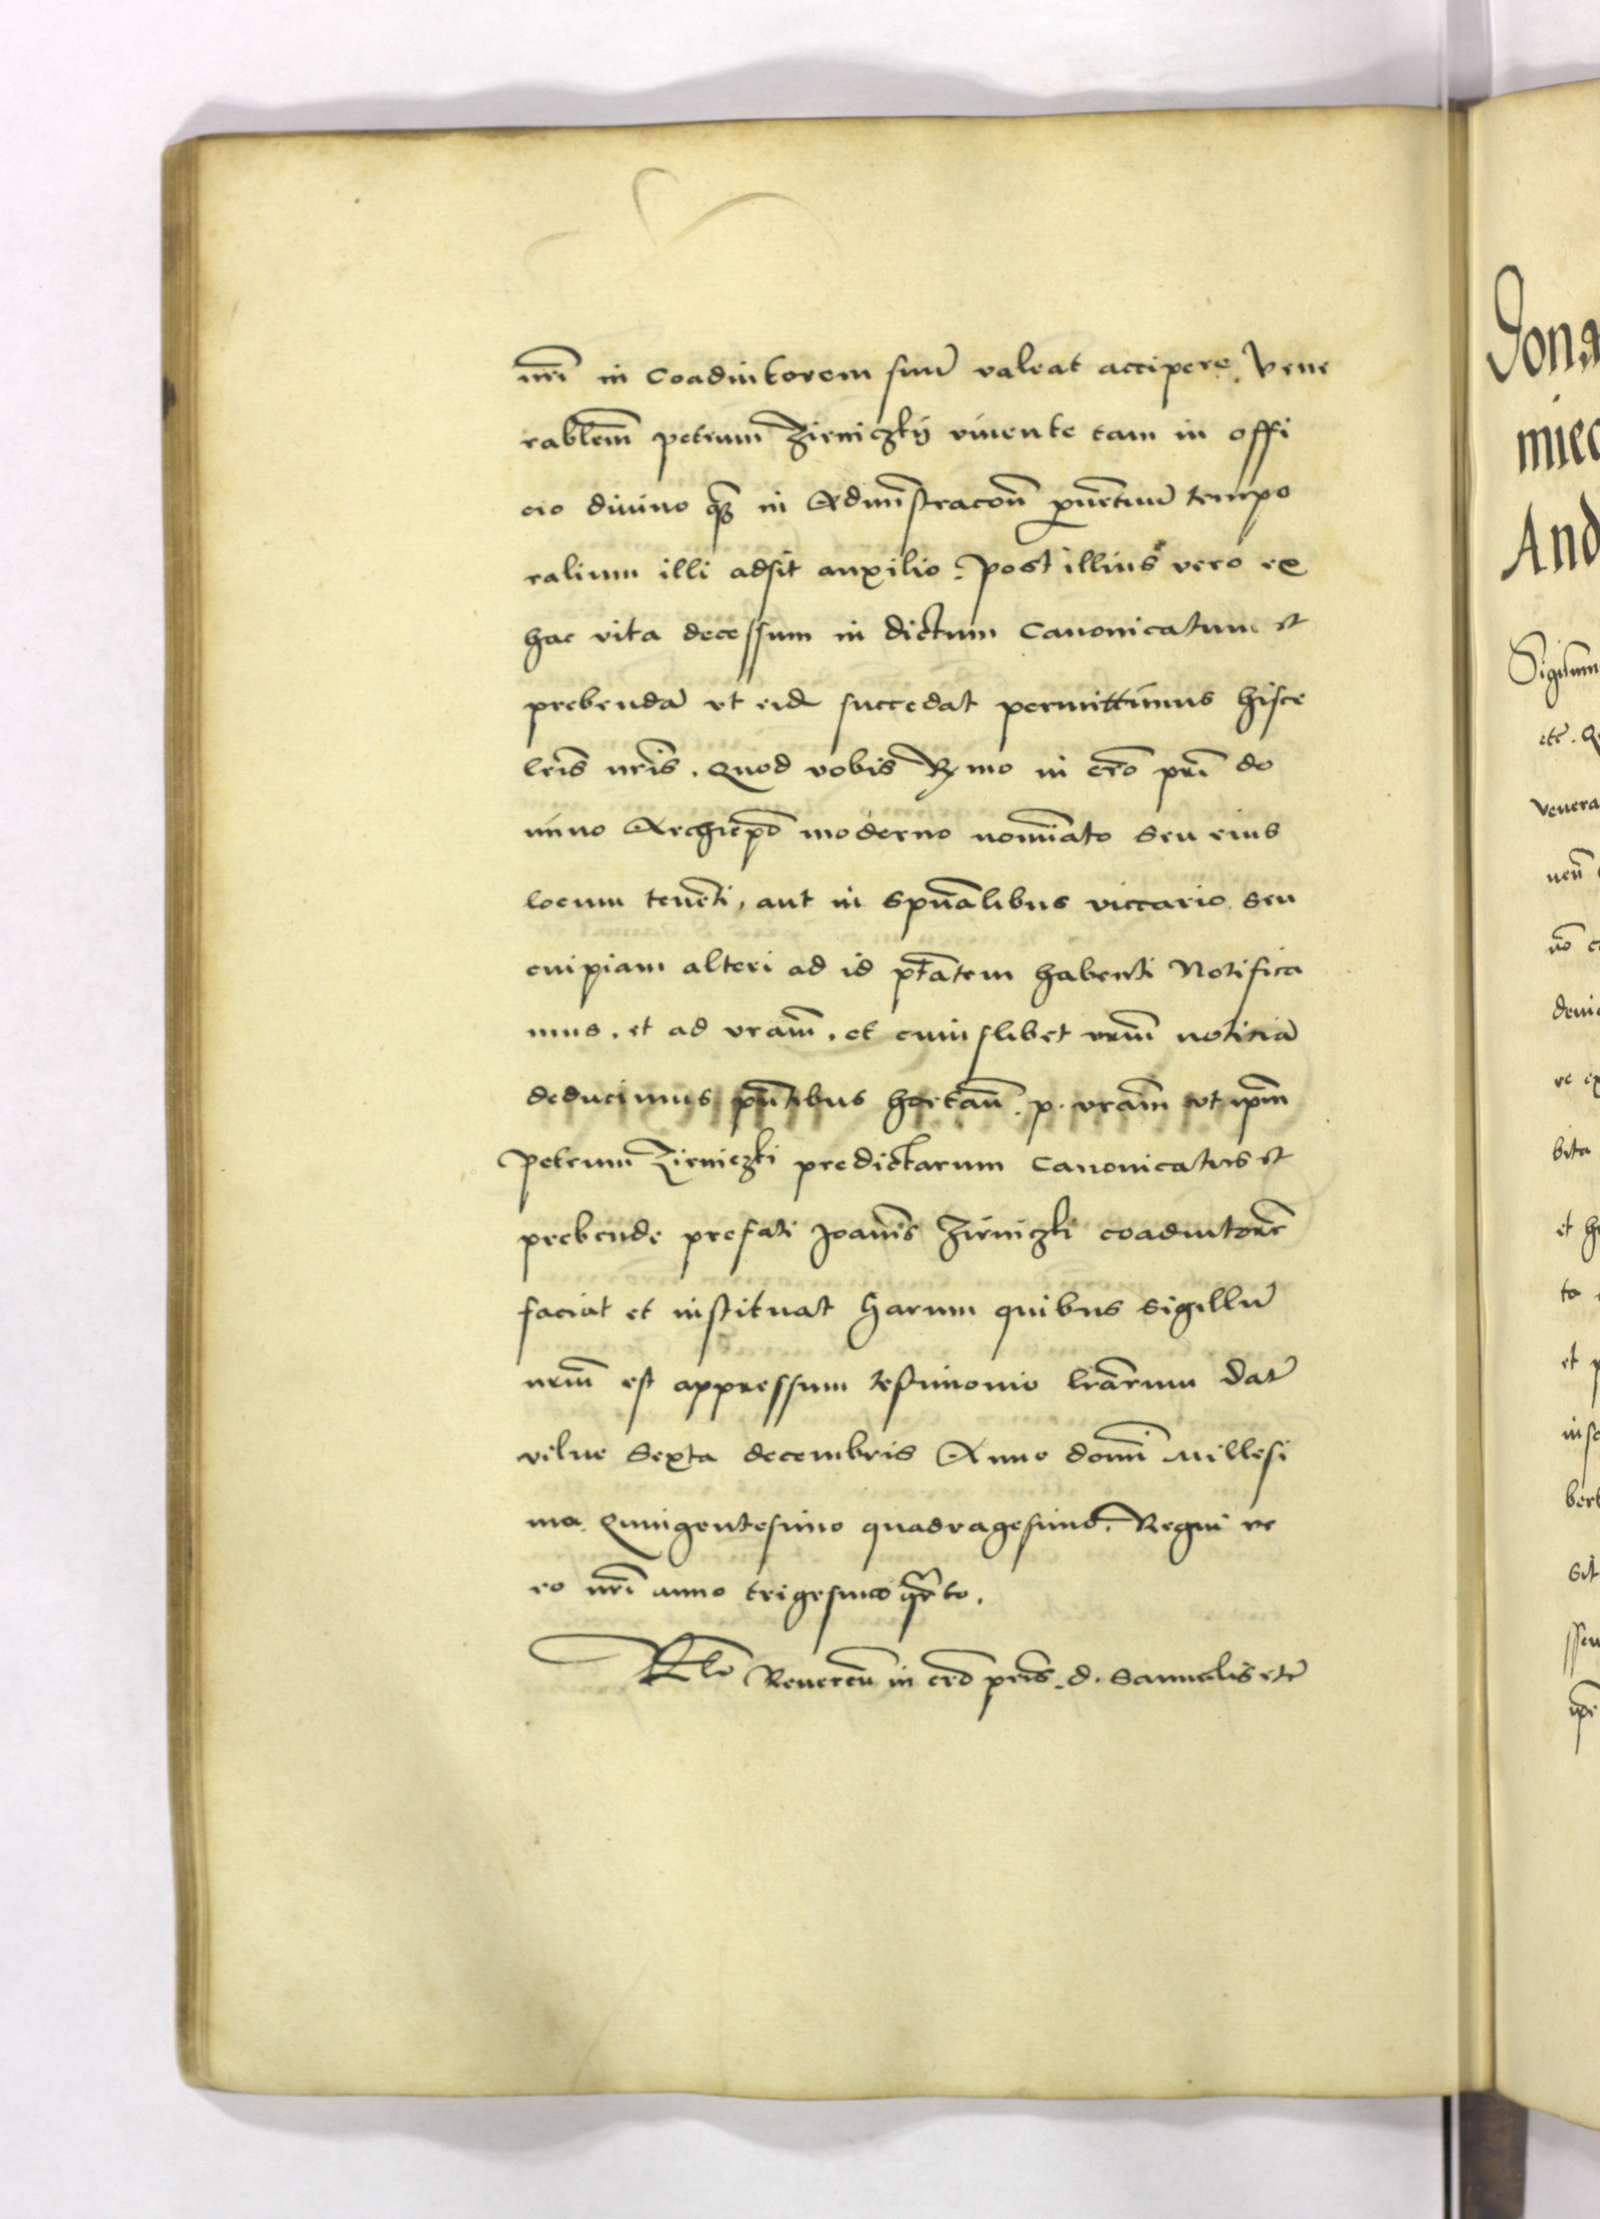 nri in Coadiutorem suu valeat accipere. Vene
rablem petrum Zirniczkij vinente tam in offi
cio diuino q3 in Admstracon puetuu tempo
ralium illi adsit auxilio. post illius vero ex
hac vita decessum in dictum Canonicatum et
prebenda vt eid succedat permittimus hisce
lris nris. Quod vobis Rmo in cro pri do
mino Archiepo moderno nominato seu eius
locum teneti, aut in spualibus viccario seu
cuipiam alteri ad id ptatem habenti Notifica
mus. et ad vram. et cuiuslibet vrm noticia
deducimus pntibus hortan. p. vram vt ipm
Petrum Zirniczki predictarum Canonicatus et
prebende prefati Joanis Zirniczki coadiutore
faciat et instituat harum quibus sigillu
nrm est appressum testimonio lrarum Dat
vilne Sexta decembris Anno domi Millesi
mo Quingentesimo quadragesimo. Regni ve
ro nri anno trigesimo qrto.
Rlo Reueren in cro pris. d. Samuelis etc
Sigillum
etc.
venera
bita
et
insc